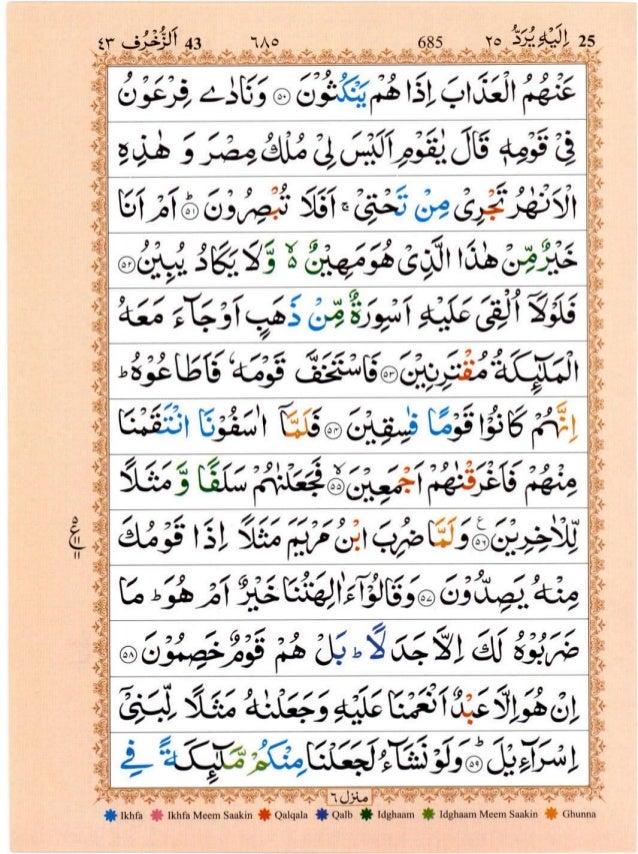 ٤٣ اَلزُّخْرُف 43 ٦٨٥ 685 ٢٥ اِلَيْهِ يُرَدُّ 25
عَنْهُمُ الْعَذَابَ اِذَا هُمْ يَنْكُثُوْنَ ﴿۵۰﴾ وَنَادٰى فِرْعَوْنُ
فِيْ قَوْمِهٖ قَالَ يٰقَوْمِ اَلَيْسَ لِيْ مُلْكُ مِصْرَ وَ هٰذِهِ
الْاَنْهٰرُ تَجْرِيْ مِنْ تَحْتِيْ ۚ اَفَلَا تُبْصِرُوْنَ ؕ﴿۵۱﴾ اَمْ اَنَا
خَيْرٌ مِّنْ هٰذَا الَّذِيْ هُوَ مَهِيْنٌ ۙ۬ وَّ لَا يَكَادُ يُبِيْنُ ﴿۵۲﴾
فَلَوْلَاۤ اُلْقِيَ عَلَيْهِ اَسْوِرَةٌ مِّنْ ذَهَبٍ اَوْ جَآءَ مَعَهُ
الْمَلٰٓئِكَةُ مُقْتَرِنِيْنَ ﴿۵۳﴾ فَاسْتَخَفَّ قَوْمَهٗ فَاَطَاعُوْهُ ؕ
اِنَّهُمْ كَانُوْا قَوْمًا فٰسِقِيْنَ ﴿۵۴﴾ فَلَمَّاۤ اٰسَفُوْنَا انْتَقَمْنَا
مِنْهُمْ فَاَغْرَقْنٰهُمْ اَجْمَعِيْنَ ۙ﴿۵۵﴾ فَجَعَلْنٰهُمْ سَلَفًا وَّ مَثَلًا
لِّلْاٰخِرِيْنَ ﴿۵۶﴾ وَلَمَّا ضُرِبَ ابْنُ مَرْيَمَ مَثَلًا اِذَا قَوْمُكَ
مِنْهُ يَصِدُّوْنَ ﴿۵۷﴾ وَقَالُوْۤا ءَاٰلِهَتُنَا خَيْرٌ اَمْ هُوَ ؕ مَا
ضَرَبُوْهُ لَكَ اِلَّا جَدَلًا ؕ بَلْ هُمْ قَوْمٌ خَصِمُوْنَ ﴿۵۸﴾
اِنْ هُوَ اِلَّا عَبْدٌ اَنْعَمْنَا عَلَيْهِ وَجَعَلْنٰهُ مَثَلًا لِّبَنِيْۤ
اِسْرَآءِيْلَ ؕ﴿۵۹﴾ وَلَوْ نَشَآءُ لَجَعَلْنَا مِنْكُمْ مَّلٰٓئِكَةً فِي
منزل ٦
Ikhfa Ikhfa Meem Saakin Qalqala Qalb Idghaam Idghaam Meem Saakin Ghunna